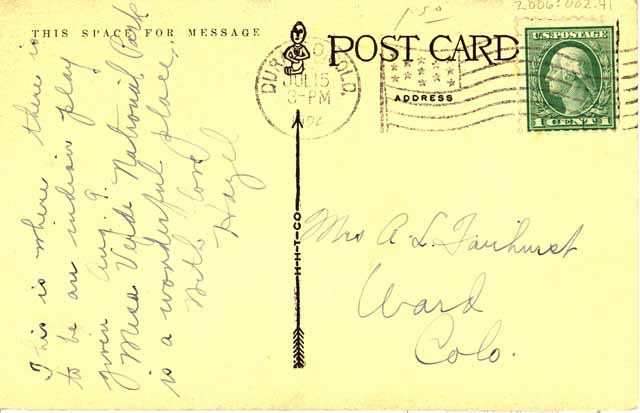 2006.002.41
1.50
THIS SPACE FOR MESSAGE
POST CARD
DURANGO, COLO.
JUL 15
3-PM
ADDRESS
U.S. POSTAGE
1 CENT 1
This is where there is
to be an indian play
given Aug 9.
Mesa Verde National Park
is a wonderful place,
With love
Hazel
H-H-T-CO
Mrs A. L. Fairhurst
Ward
Colo.